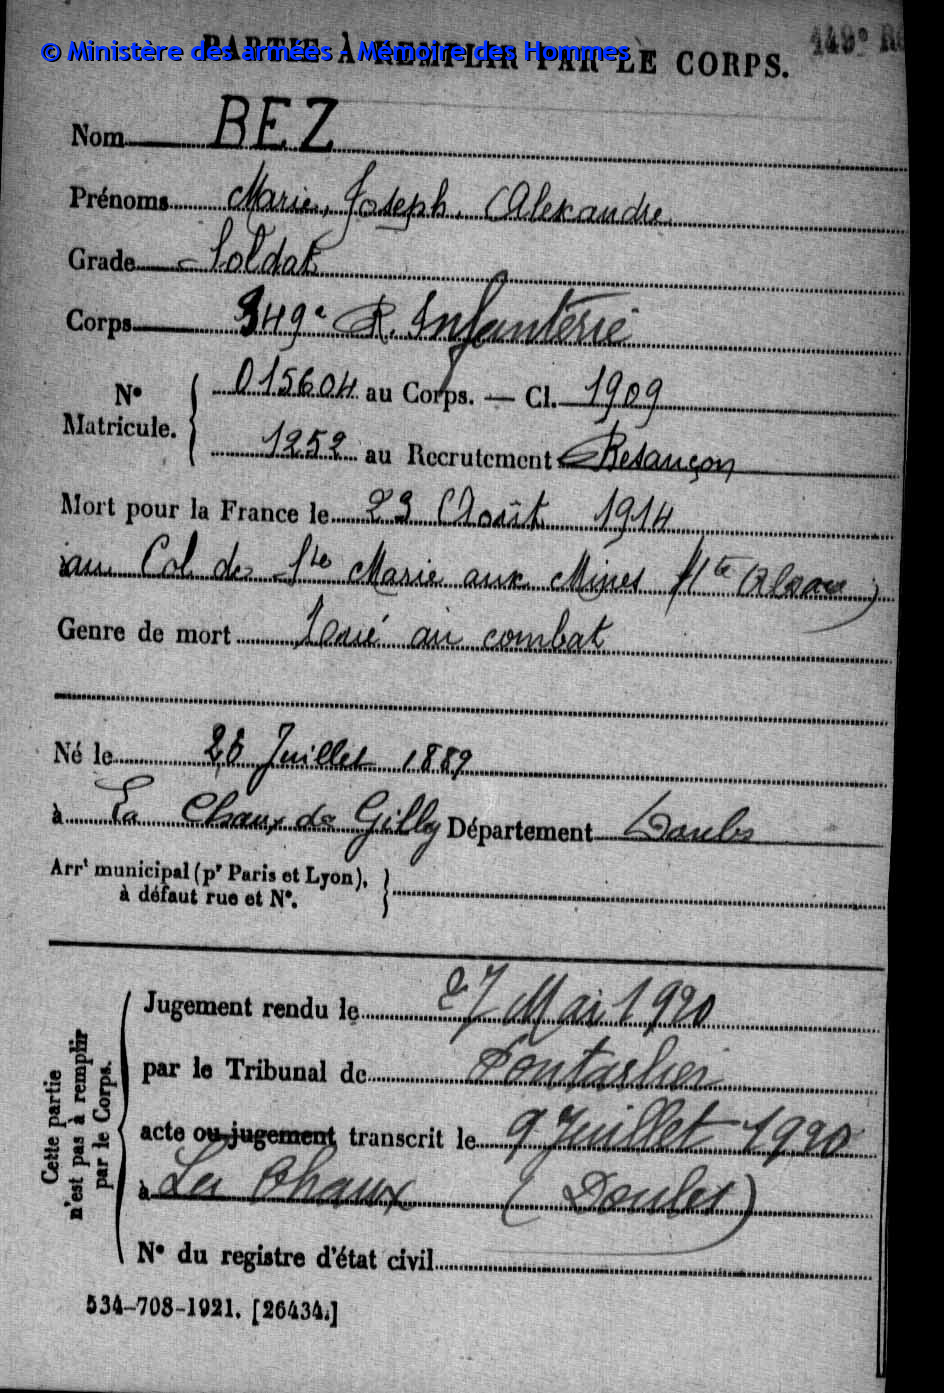 © Ministère des armées - Mémoire des Hommes
PARTIE À REMPLIR PAR LE CORPS.
149e
Nom BEZ
Prénoms Marie, Joseph, Alexandre
Grade Soldat
Corps 349e R. Infanterie
No Matricule. { 015604 au Corps. — Cl. 1909
1252 au Recrutement Besançon
Mort pour la France le 23 Août 1914
au Col de Ste Marie aux Mines Hte Alsace)
Genre de mort Tué au combat
Né le 26 Juillet 1889
à La Chaux de Gilley Département Doubs
Arrt municipal (pr Paris et Lyon),
à défaut rue et No.
Cette partie
n'est pas à remplir
par le Corps.
Jugement rendu le 27 Mai 1920
par le Tribunal de Pontarlier
acte ou jugement transcrit le 9 Juillet 1920
à La Chaux (Doubs)
No du registre d'état civil
534-708-1921. [26434.]